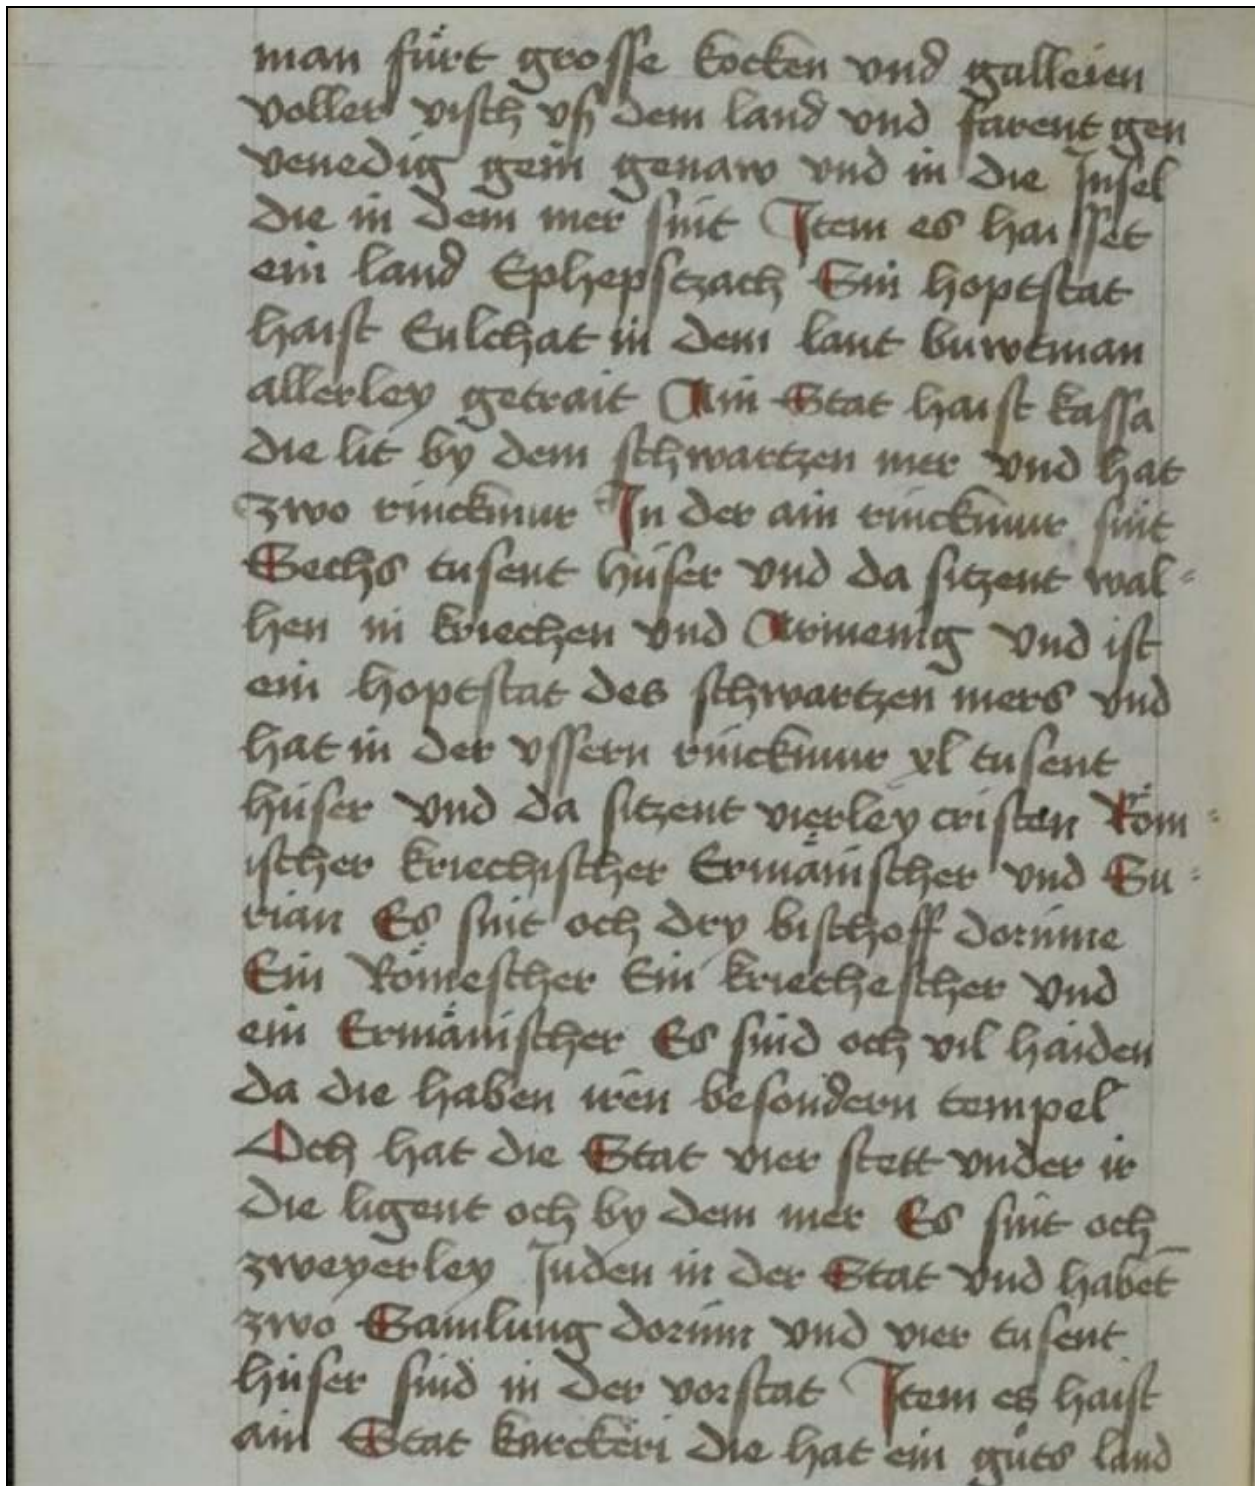 man fürt grosse kocken vnd galleien
voller visch vsß dem land vnd farent gen
venedig gein genaw vnd in die Insel
die in dem mer sint Item es haisset
ein land Ephepstzach Sin hoptstat
haist Sulchat in dem lant buwtman
allerley getrait Ain Stat haist kassa
die lit by dem schwartzen mer vnd hat
zwo rinckmur In der ain rinckmur sint
Sechs tusent hüser vnd da sitzent wal-
hen in kriechen vnd Armenig vnd ist
ein hoptstat des schwartzen mers vnd
hat in der vssern rinckmur xl tusent
hüser vnd da sitzent vierley cristen Röm-
ischer kriechischer Ermänischer vnd Su-
rian Es sint och dry bischoff dorinne
Ein Römescher Ein kriechescher vnd
ein Ermänischer Es sind och vil haiden
da die haben iren besondern tempel
Och hat die Stat vier stett vnder ir
die ligent och by dem mer Es sint och
zweyerley Juden in der Stat vnd habēt
zwo Samlung dorinn vnd vier tusent
hüser sind in der vorstat Item es haist
ain Stat karckeri die hat ein güts land